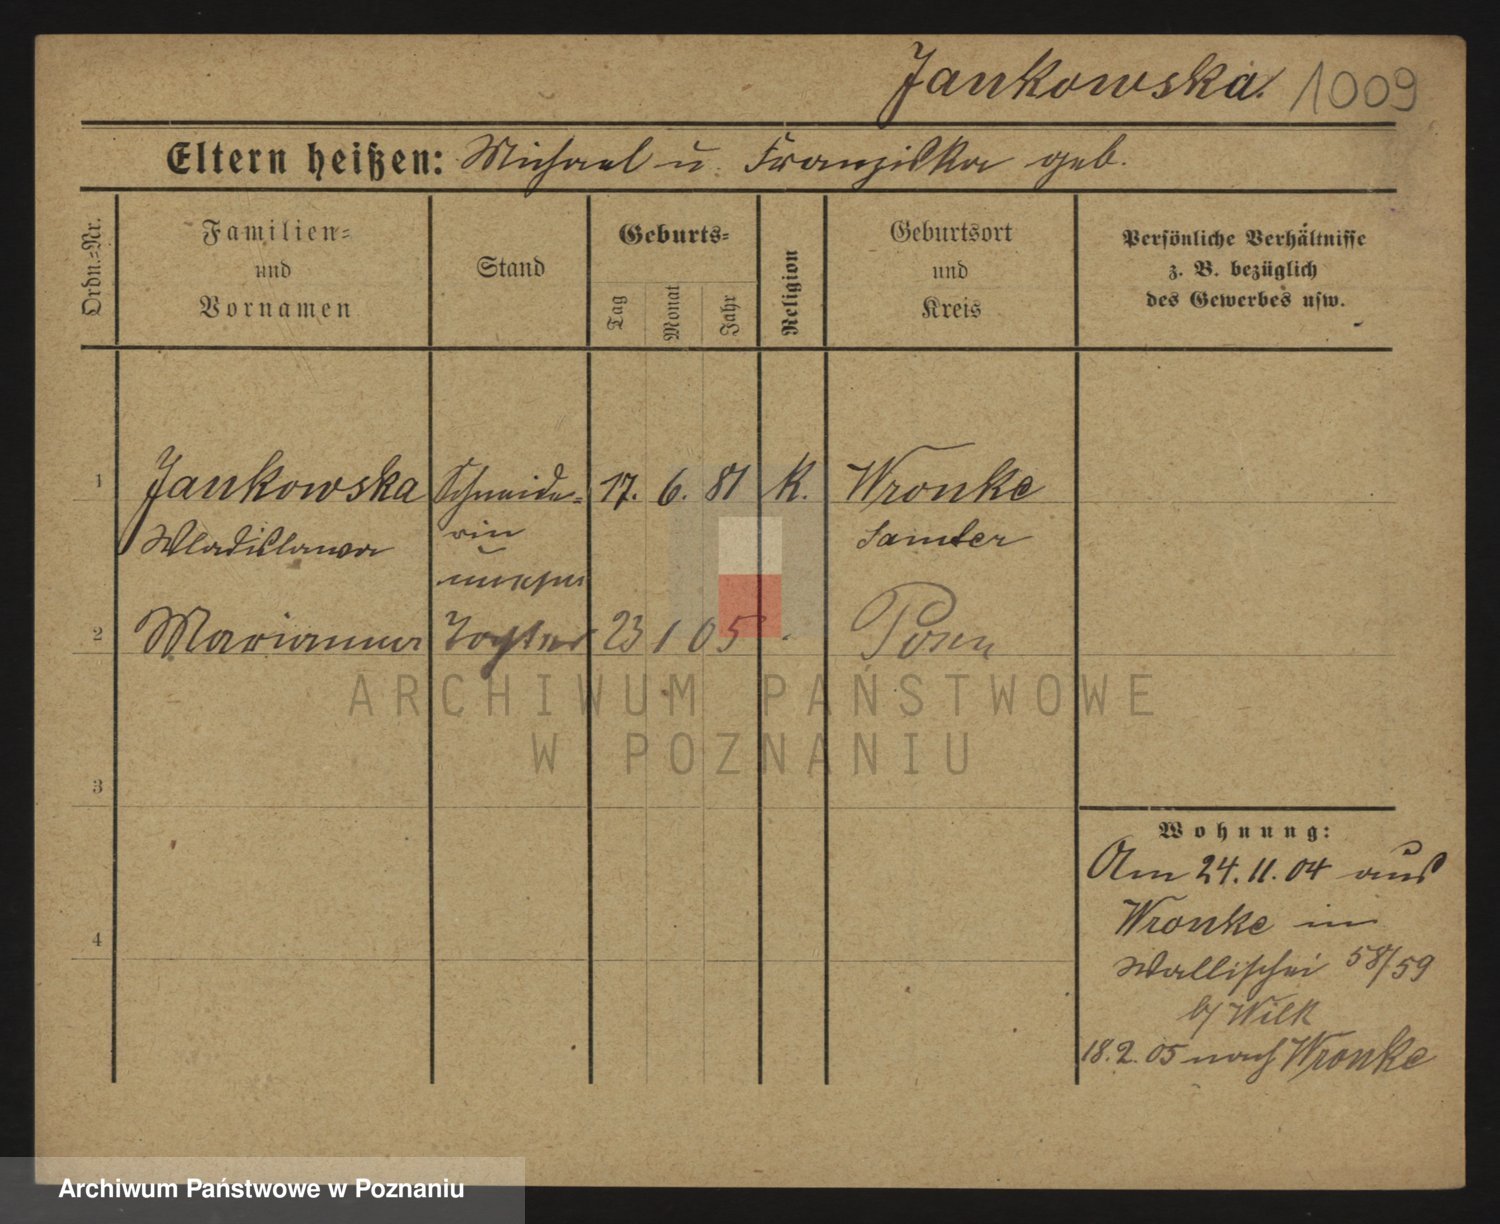 Jankowska. 1009
Eltern heißen: Michael u. Franziska geb.
Ordn.-Nr.
Familien-
und
Vornamen
Stand
Geburts-
Tag
Monat
Jahr
Religion
Geburtsort
und
Kreis
Persönliche Verhältnisse
z. B. bezüglich
des Gewerbes usw.
1 Jankowska Schneide- 17. 6. 81 K. Wronke
Wladislawa rin Samter
2 Marianna Tochter 23 1 05 Posen
ARCHIWUM PAŃSTWOWE
W POZNANIU
3
Wohnung:
Am 24.11.04 aus
Wronke in
4
Wallischei 58/59
b/ Wilk
18.2.05 nach Wronke
Archiwum Państwowe w Poznaniu